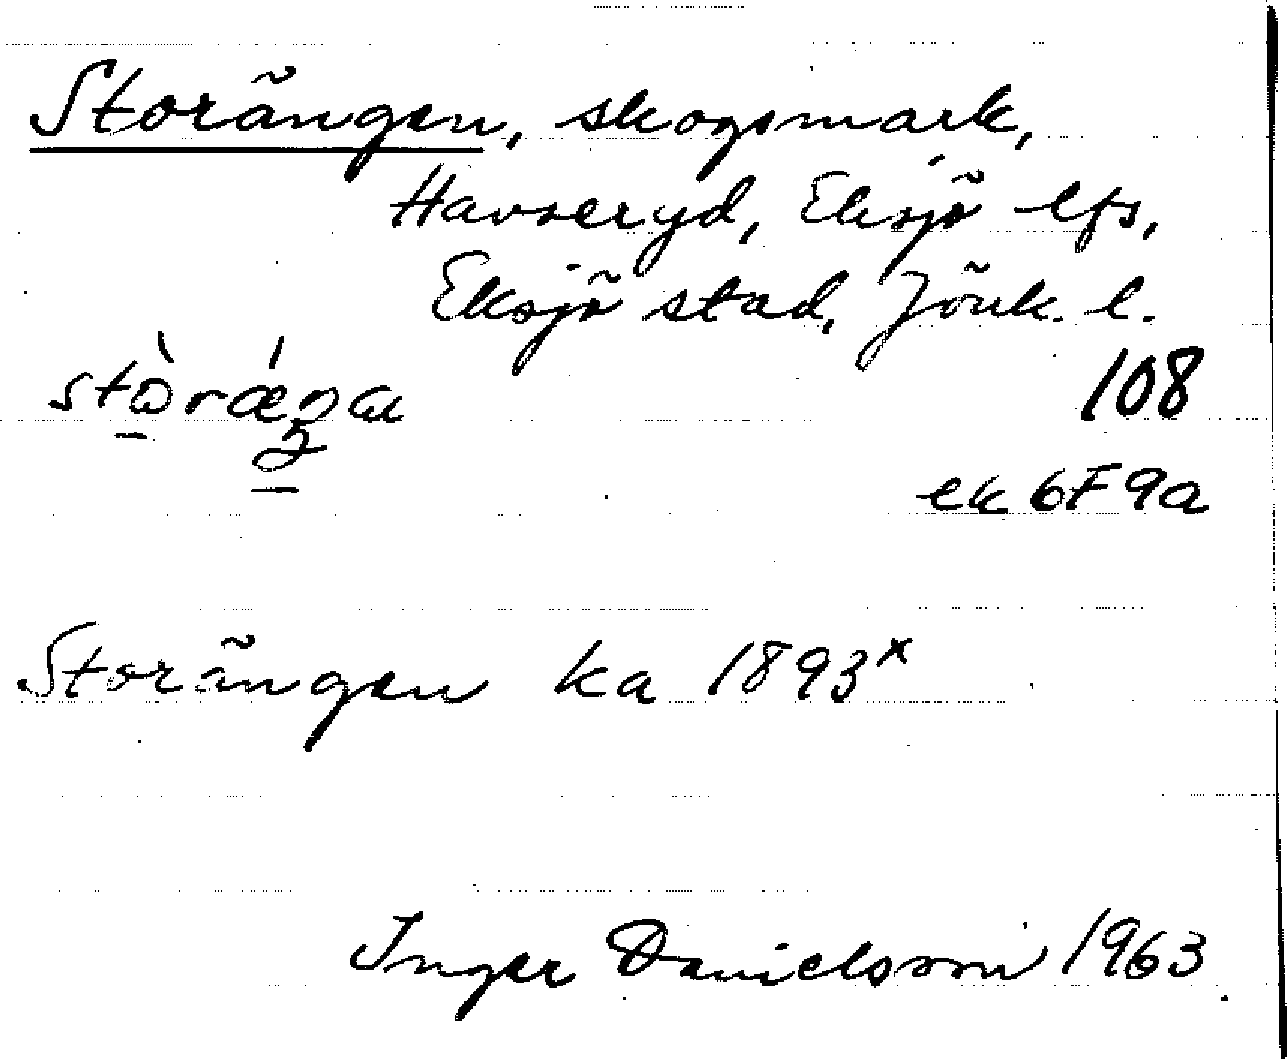 Storängen, skogsmark,
Havseryd, Eksjö lfs,
Eksjö stad, Jönk. l.
108
ek 6F9a
Storängen ka 1893x
Inger Danielsson 1963